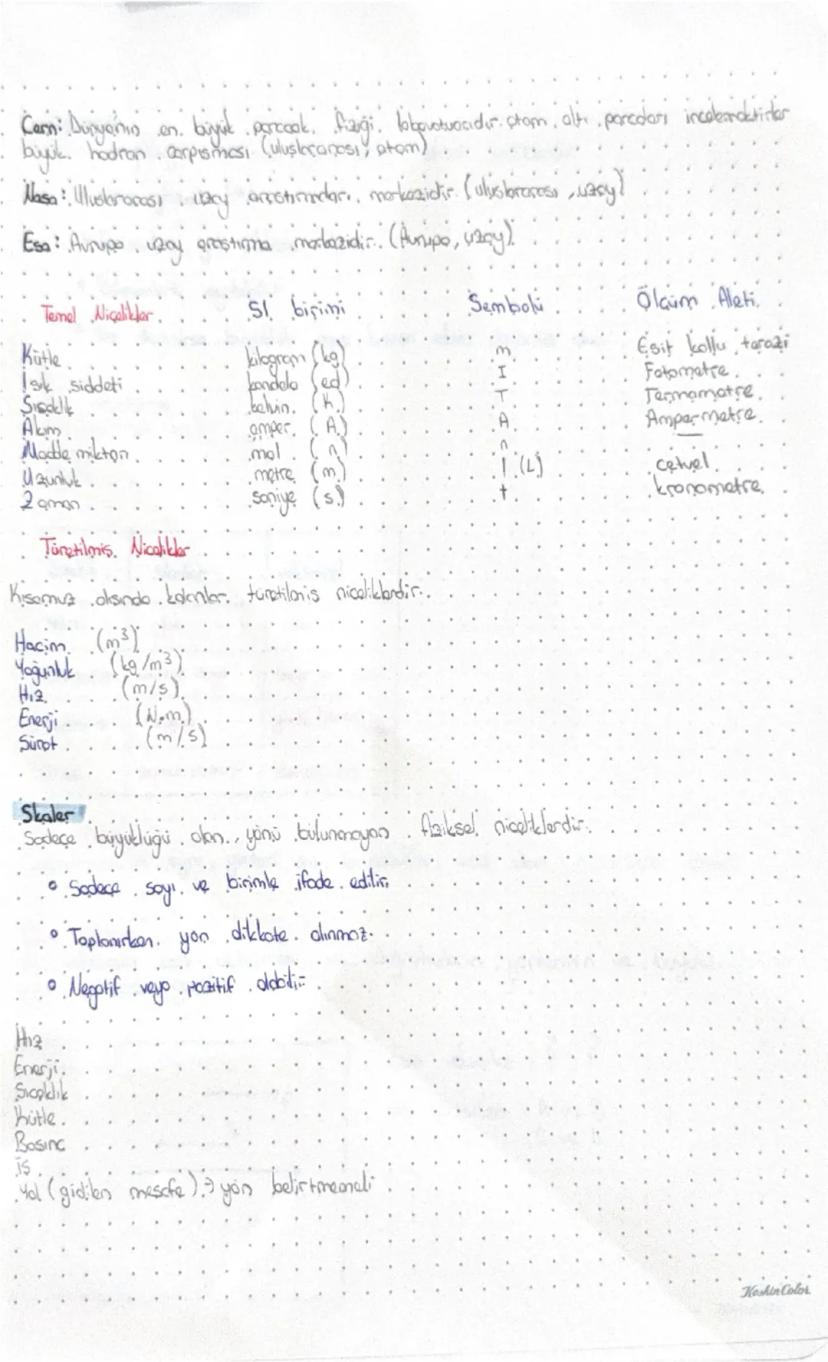 Cern: Dünyanın en büyük parçacık fiziği laboratuvarıdır. Atom altı parçaları incelemektirler
büyük hadron çarpışması (uluslararası, atom)
Nasa: Uluslararası uzay araştırmaları merkezidir. (uluslararası, uzay)
Esa: Avrupa uzay araştırma merkezidir. (Avrupa, uzay)
Temel Niçelikler SI birimi Sembolü Ölçüm Aleti
Kütle kilogram (kg) m Eşit kollu terazi
Işık şiddeti kandela (ed) I Fotometre
Sıcaklık kelvin (K) T Termometre
Akım amper (A) A Ampermetre
Madde miktarı mol (n) n —
Uzunluk metre (m) l (L) cetvel
Zaman saniye (s) t kronometre
Türetilmiş Nicelikler
Kısamuz dışında kalanlar türetilmiş niceliklerdir.
Hacim (m³)
Yoğunluk (kg/m³)
Hız (m/s)
Enerji (N.m)
Sürat (m/s)
Skaler
Sadece büyüklüğü olan, yönü bulunmayan fiziksel niceliklerdir.
• Sadece sayı ve birimle ifade edilir.
• Toplanırken yön dikkate alınmaz.
• Negatif veya pozitif olabilir.
Hız
Enerji
Sıcaklık
Kütle
Basınç
iş
Yol (gidilen mesafe) → yön belirtmemeli
KeskinColor